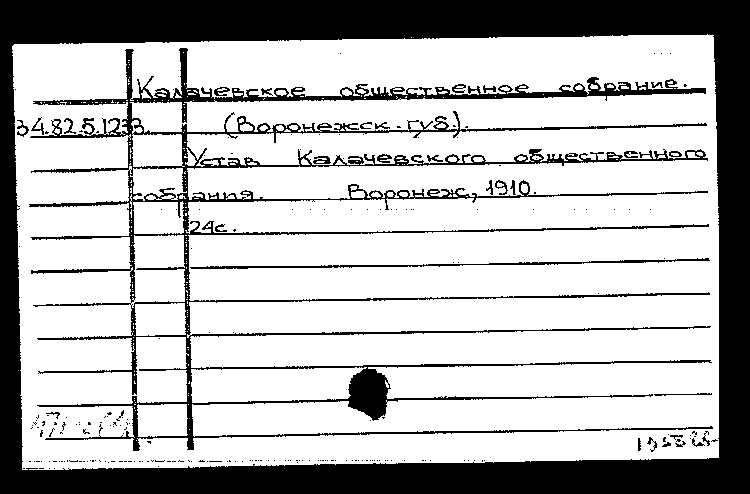 Калачевское общественное собрание.
34.82.5.1233. (Воронежск. губ.).
Устав Калачевского общественного
собрания. Воронеж, 1910.
24с.